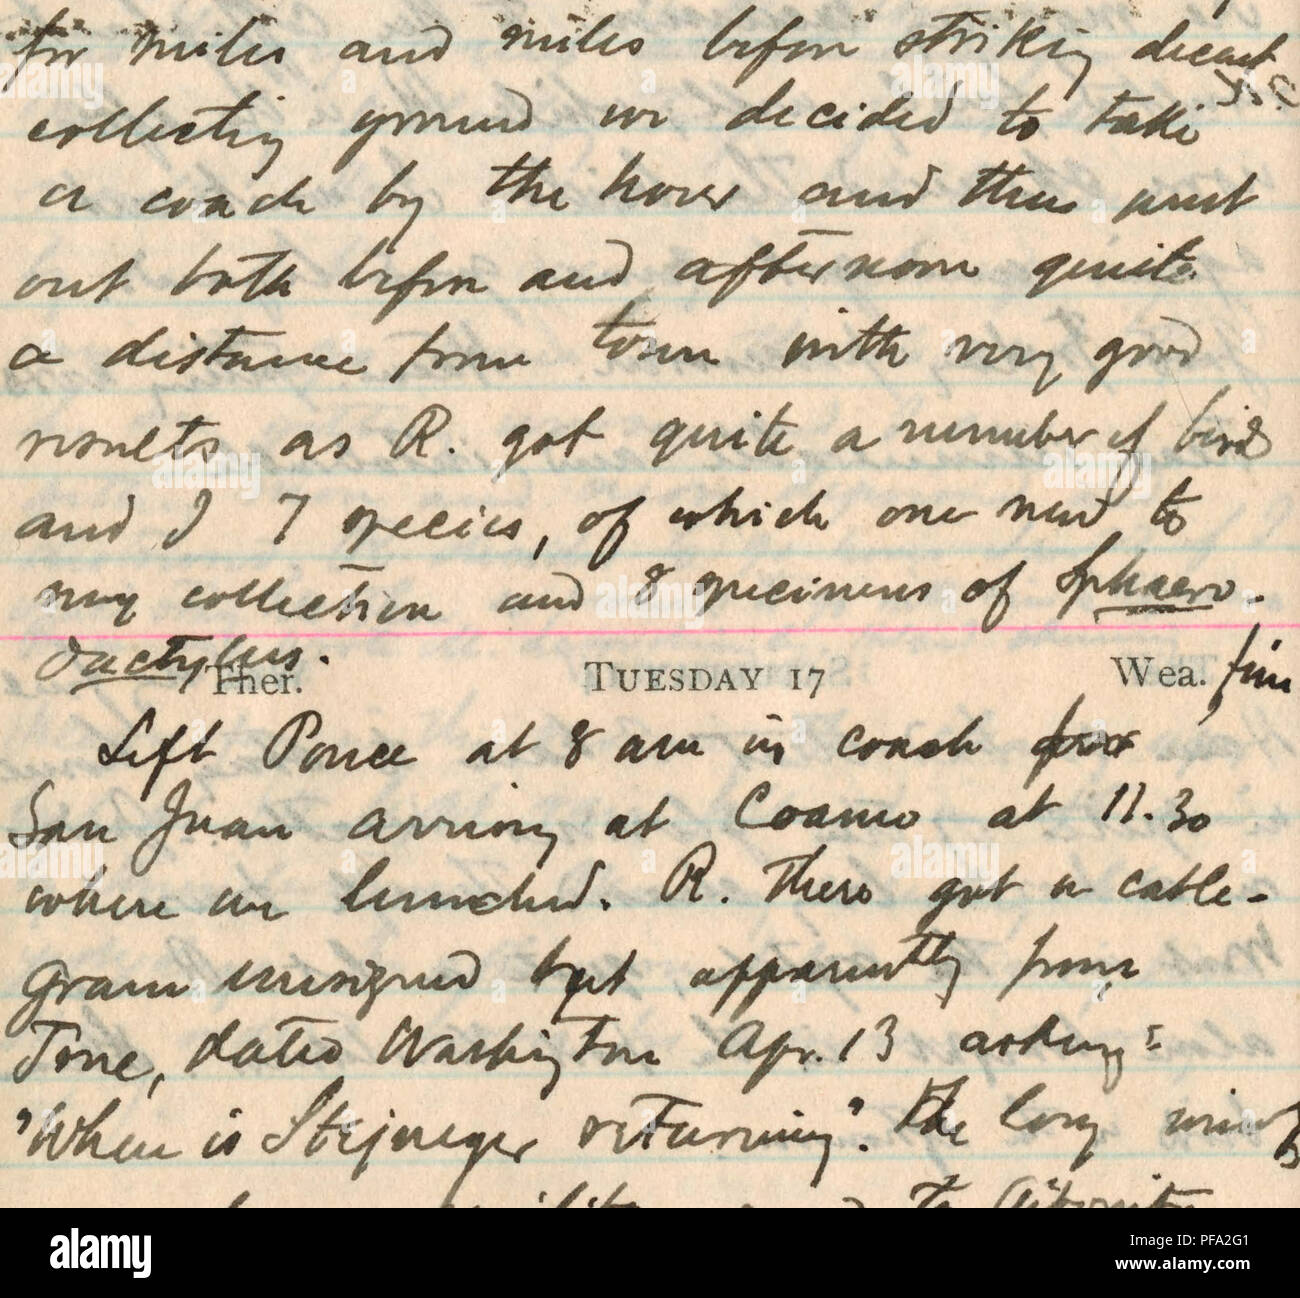 for miles and miles before striking decent
collecting ground we decided to take
a coach by the hour and thus went
out both before and afternoon quite
a distance from town with very good
results as R. got quite a number of birds
and I 7 species, of which one new to
my collection and 8 specimens of Sphaero-
dactylus.
Ther. TUESDAY 17 Wea. fine
Left Ponce at 8 am in coach for
San Juan arriving at Coamo at 11.30
where we lunched. R. there got a cable-
gram unsigned but apparently from
True, dated Washington Apr. 13 asking:
"When is Stejneger returning". The long
to Aibonito
alamy
Image ID: PFA2G1
www.alamy.com